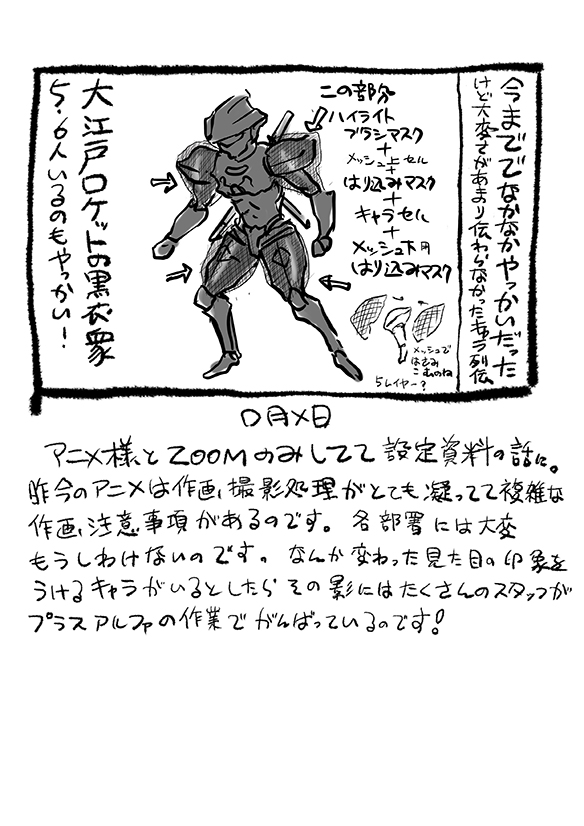 今までで なかなかやっかいだった
けど大変さがあまり伝わらなかったキャラ列伝
この部分
ハイライト
ブラシマスク
+
メッシュ上セル
+
はり込みマスク
+
キャラセル
+
メッシュ下用
はり込みマスク
メッシュで
はさみ
こむのね
5レイヤー?
大江戸ロケットの黒衣衆
5.6人いるのもやっかい!
〇月×日
アニメ様とZOOMのみしてて設定資料の話に。
昨今のアニメは作画、撮影処理がとても凝ってて複雑な
作画注意事項があるのです。各部署には大変
もうしわけないのです。なんか変わった見た目の印象を
うけるキャラがいるとしたらその影にはたくさんのスタッフが
プラスアルファの作業でがんばっているのです!